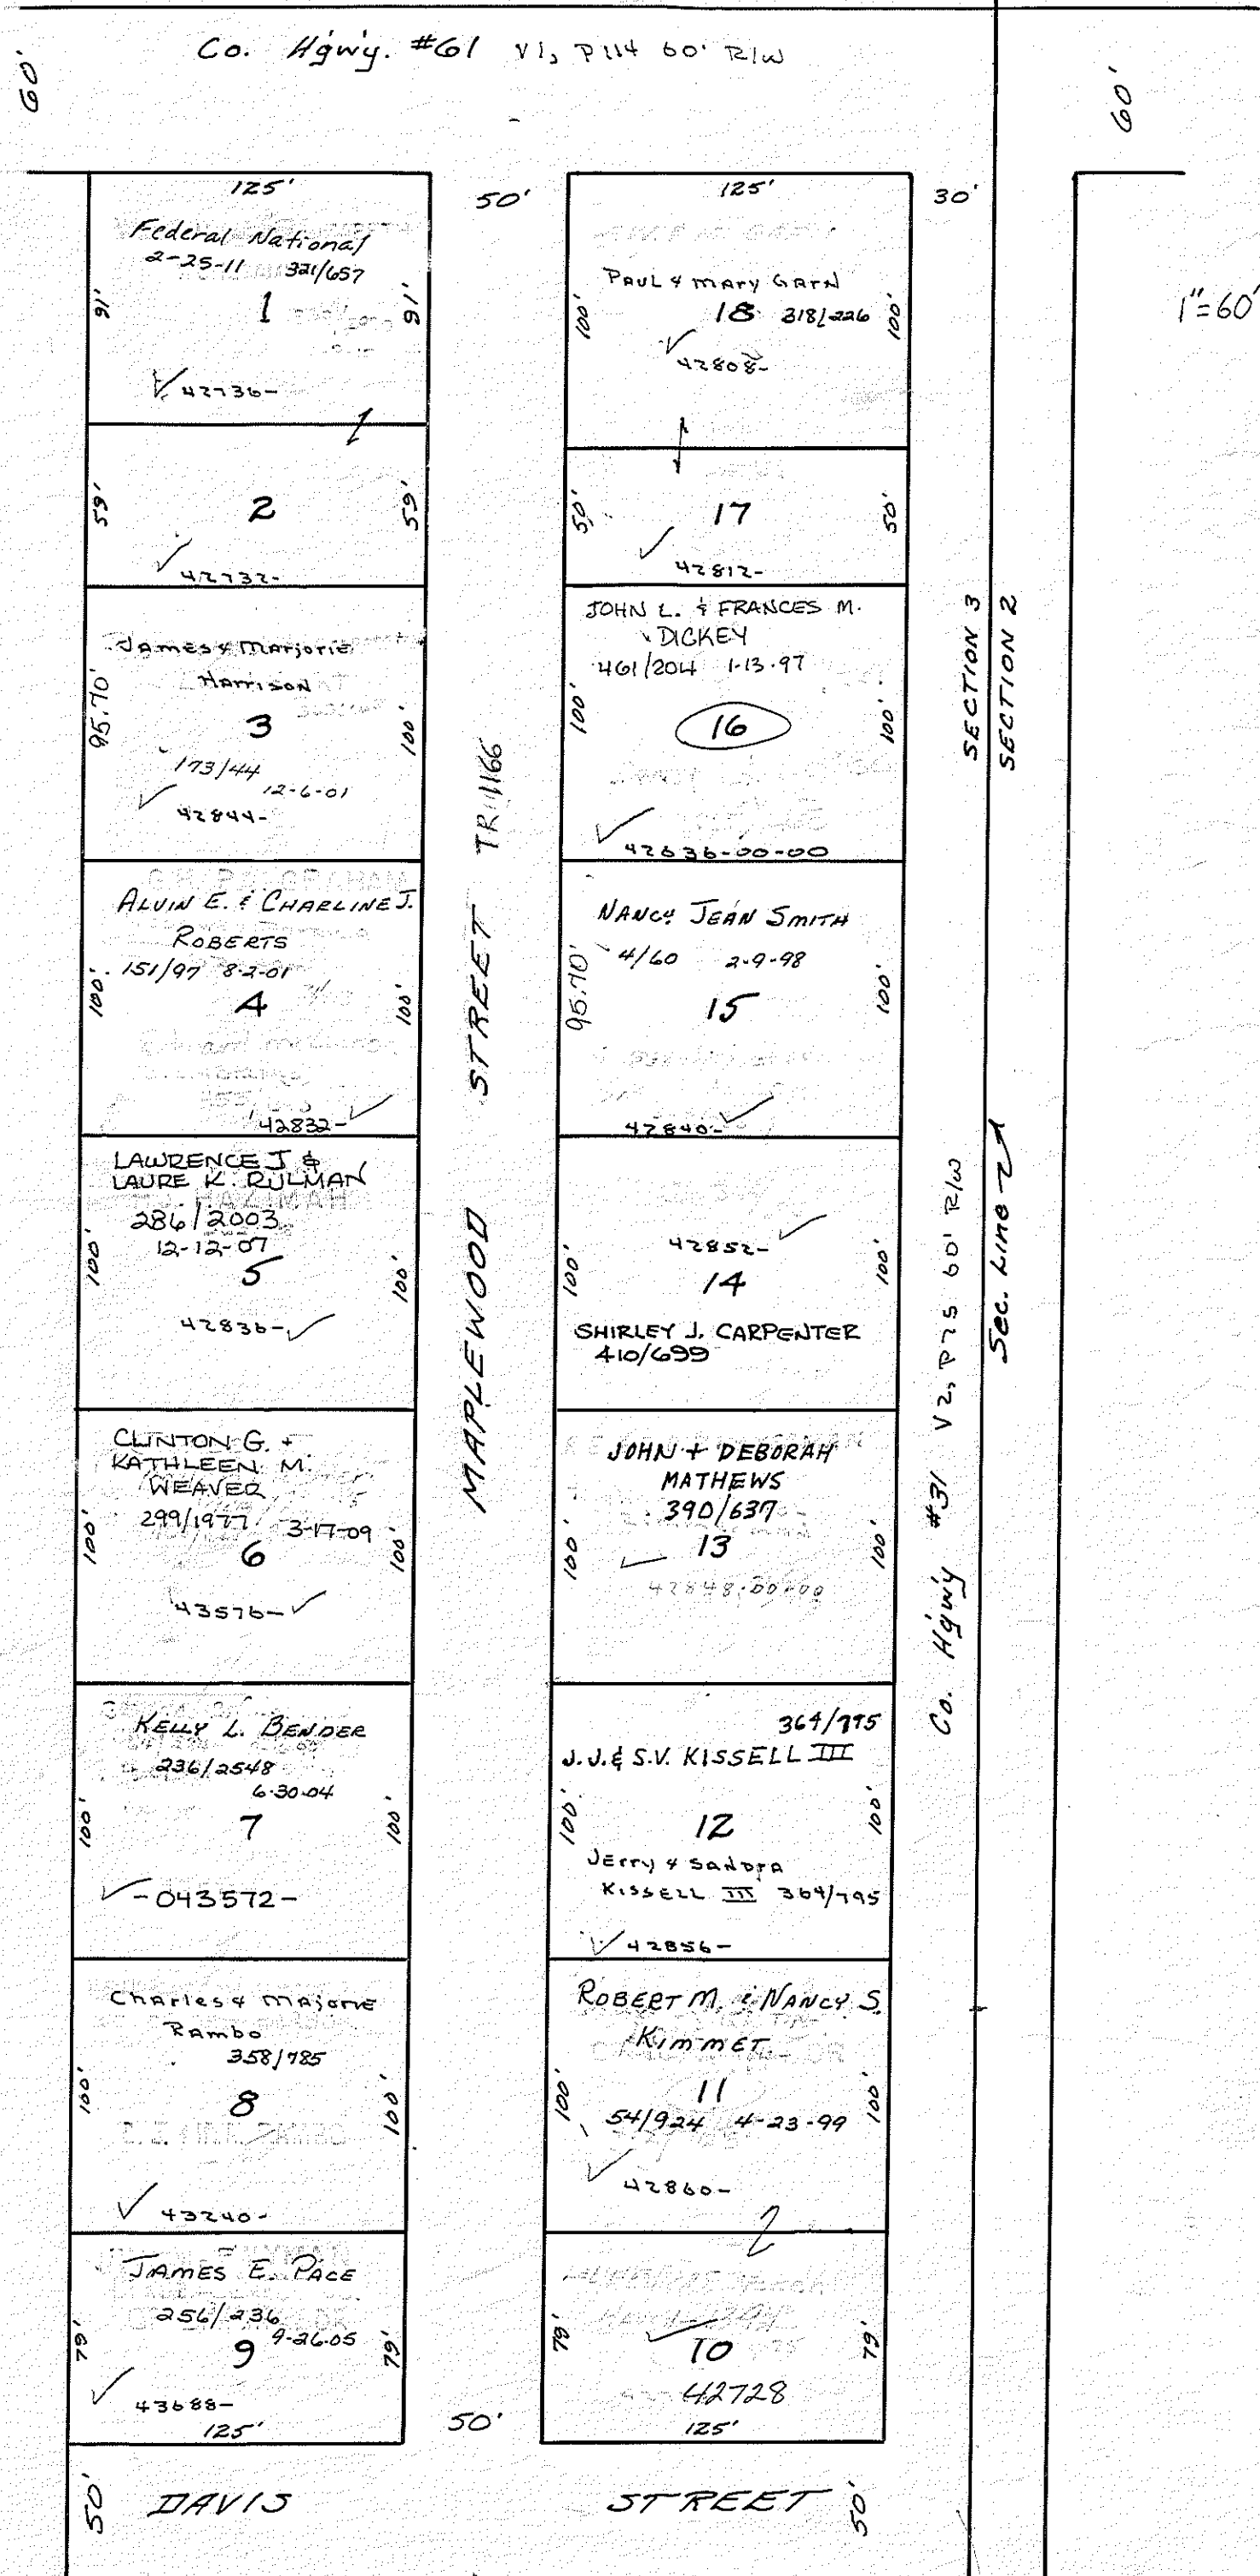 Co. Hgwy. #61 V1, P114 60' R/W
60'
60'
125'
50'
125'
30'
1"=60'
Federal National
2-25-11 321/657
91'
1
91'
42736-
59'
2
59'
42732-
James & Marjorie
Harrison
95.70'
3
100'
173/44
12-6-01
42844-
ALVIN E. & CHARLINE J.
ROBERTS
151/97 8-2-01
100'
4
100'
42832-
LAWRENCE J &
LAURE K. RULMAN
286/2003
12-12-07
100'
5
100'
42836-
CLINTON G. +
KATHLEEN M.
WEAVER
299/1977 3-17-09
100'
6
100'
43576-
KELLY L. BENDER
236/2548
6-30-04
100'
7
100'
-043572-
Charles & Majorie
Rambo
358/785
100'
8
100'
43240-
JAMES E. PACE
256/236
9-26-05
79'
9
79'
43688-
125'
MAPLEWOOD STREET TR 1166
50'
PAUL & MARY GARN
100'
18 318/226
100'
42808-
50'
17
50'
42812-
JOHN L. & FRANCES M.
DICKEY
461/204 1-13-97
100'
16
100'
42636-00-00
NANCY JEAN SMITH
4/60 2-9-98
95.70'
15
100'
42840-
42852-
100'
14
100'
SHIRLEY J. CARPENTER
410/699
JOHN + DEBORAH
MATHEWS
390/637
100'
13
100'
42848-00-00
364/795
J.J. & S.V. KISSELL III
100'
12
100'
Jerry & Sandra
KISSELL III 364/795
42856-
ROBERT M. & NANCY S.
KIMMET
100'
11
100'
54/924 4-23-99
42860-
79'
10
79'
42728
125'
SECTION 3
SECTION 2
Sec. Line
Co. Hgwy #31 V2, P75 60' R/W
50'
DAVIS STREET
50'